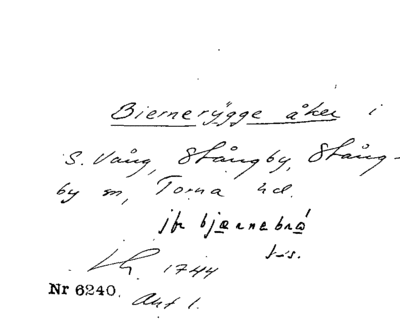 Biernerÿgge åker i
S. Vång, Stångby, Stång-
by sn, Torna hd.
jfr bjærnebrǫ́
s-s.
Lh. 1744
Nr 6240. Akt 1.